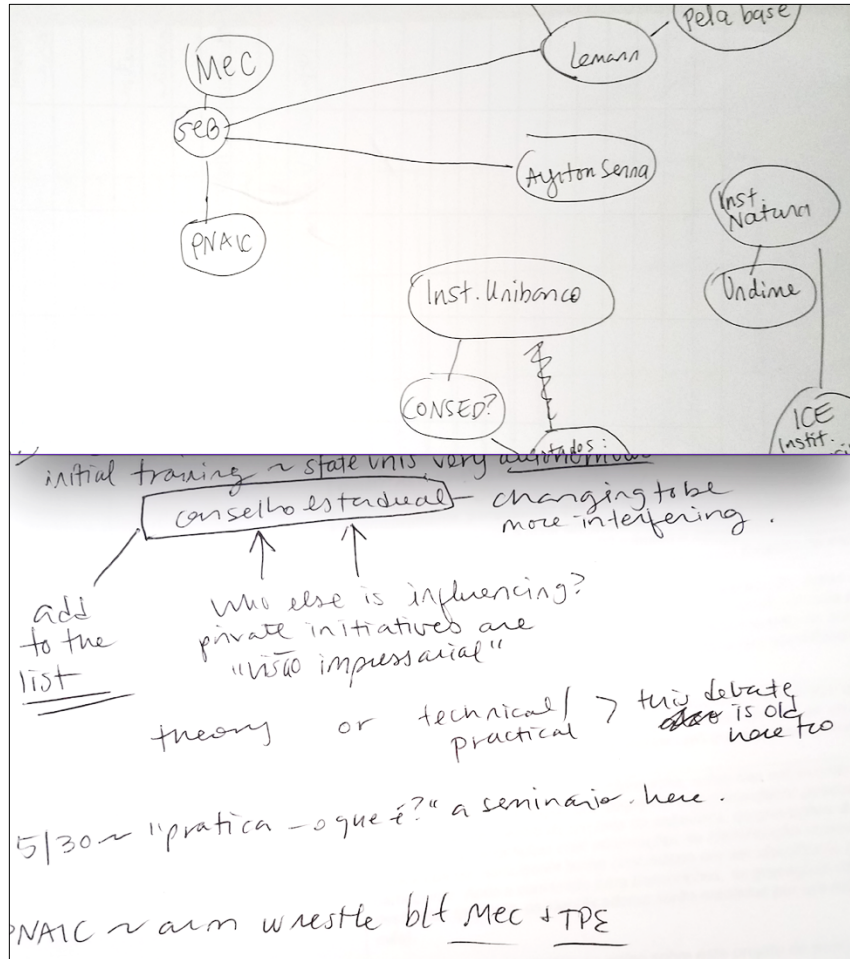 Pela base
Lemann
MEC
SEB
Ayrton Senna
PNAIC
Inst.
Natura
Undime
Inst. Unibanco
CONSED?
ICE
Instit.
initial training ~ state unis very
conselho estadual - changing to be
more interfering.
add
to the
list
who else is influencing?
private initiatives are
"visão impressarial"
theory or technical/
practical > this debate
is old
here too
5/30 ~ "pratica - o que é?" a seminario here.
PNAIC ~ arm wrestle b/t MEC + TPE